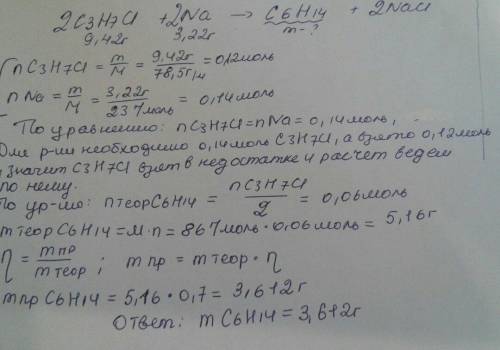 2C3H7Cl + 2Na → C6H14 + 2NaCl
9,42г 3,22г m-?
nC3H7Cl = m/M = 9,42г/78,5г/м = 0,12моль
n Na = m/M = 3,22г/23г/моль = 0,14моль
По уравнению: nC3H7Cl = nNa = 0,14моль,
Для р-ии необходимо 0,14моль C3H7Cl, а взято 0,12моль
, значит C3H7Cl взят в недостатке и расчет ведем
по нему.
По ур-ию: nтеорC6H14 = nC3H7Cl/2 = 0,06моль
mтеорC6H14 = M·n = 86г/моль·0,06моль = 5,16г
η = mпр/mтеор ; mпр = mтеор·η
mпр C6H14 = 5,16·0,7 = 3,612г
Ответ: mC6H14 = 3,612г